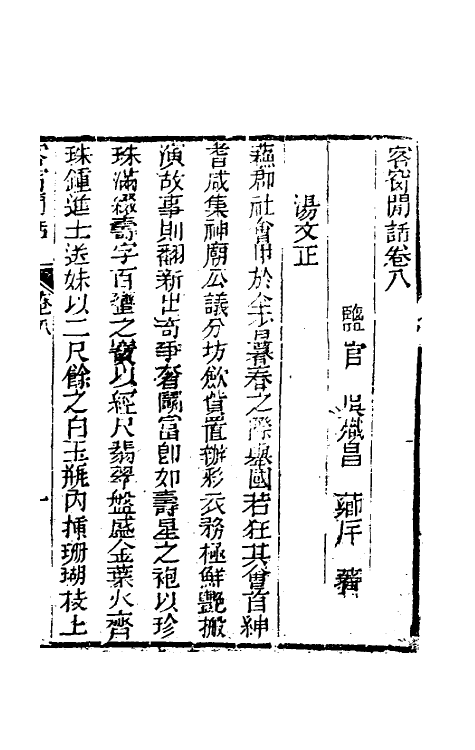 客窗閒話卷八
鹽官 吳熾昌 薌厈 著
湯文正
蘇郡社會甲於全省暮春之際舉國若狂其會首紳
耆咸集神廟公議分坊斂貨置辦彩衣務極鮮艷搬
演故事則翻新出奇爭奢鬭富卽如壽星之袍以珍
珠滿綴壽字百壽之以經尺翡翠盤盛金葉火齊
珠鍾進士送妹以二尺餘之白玉瓶內揷珊瑚枝上
客窗閒話 卷八 一